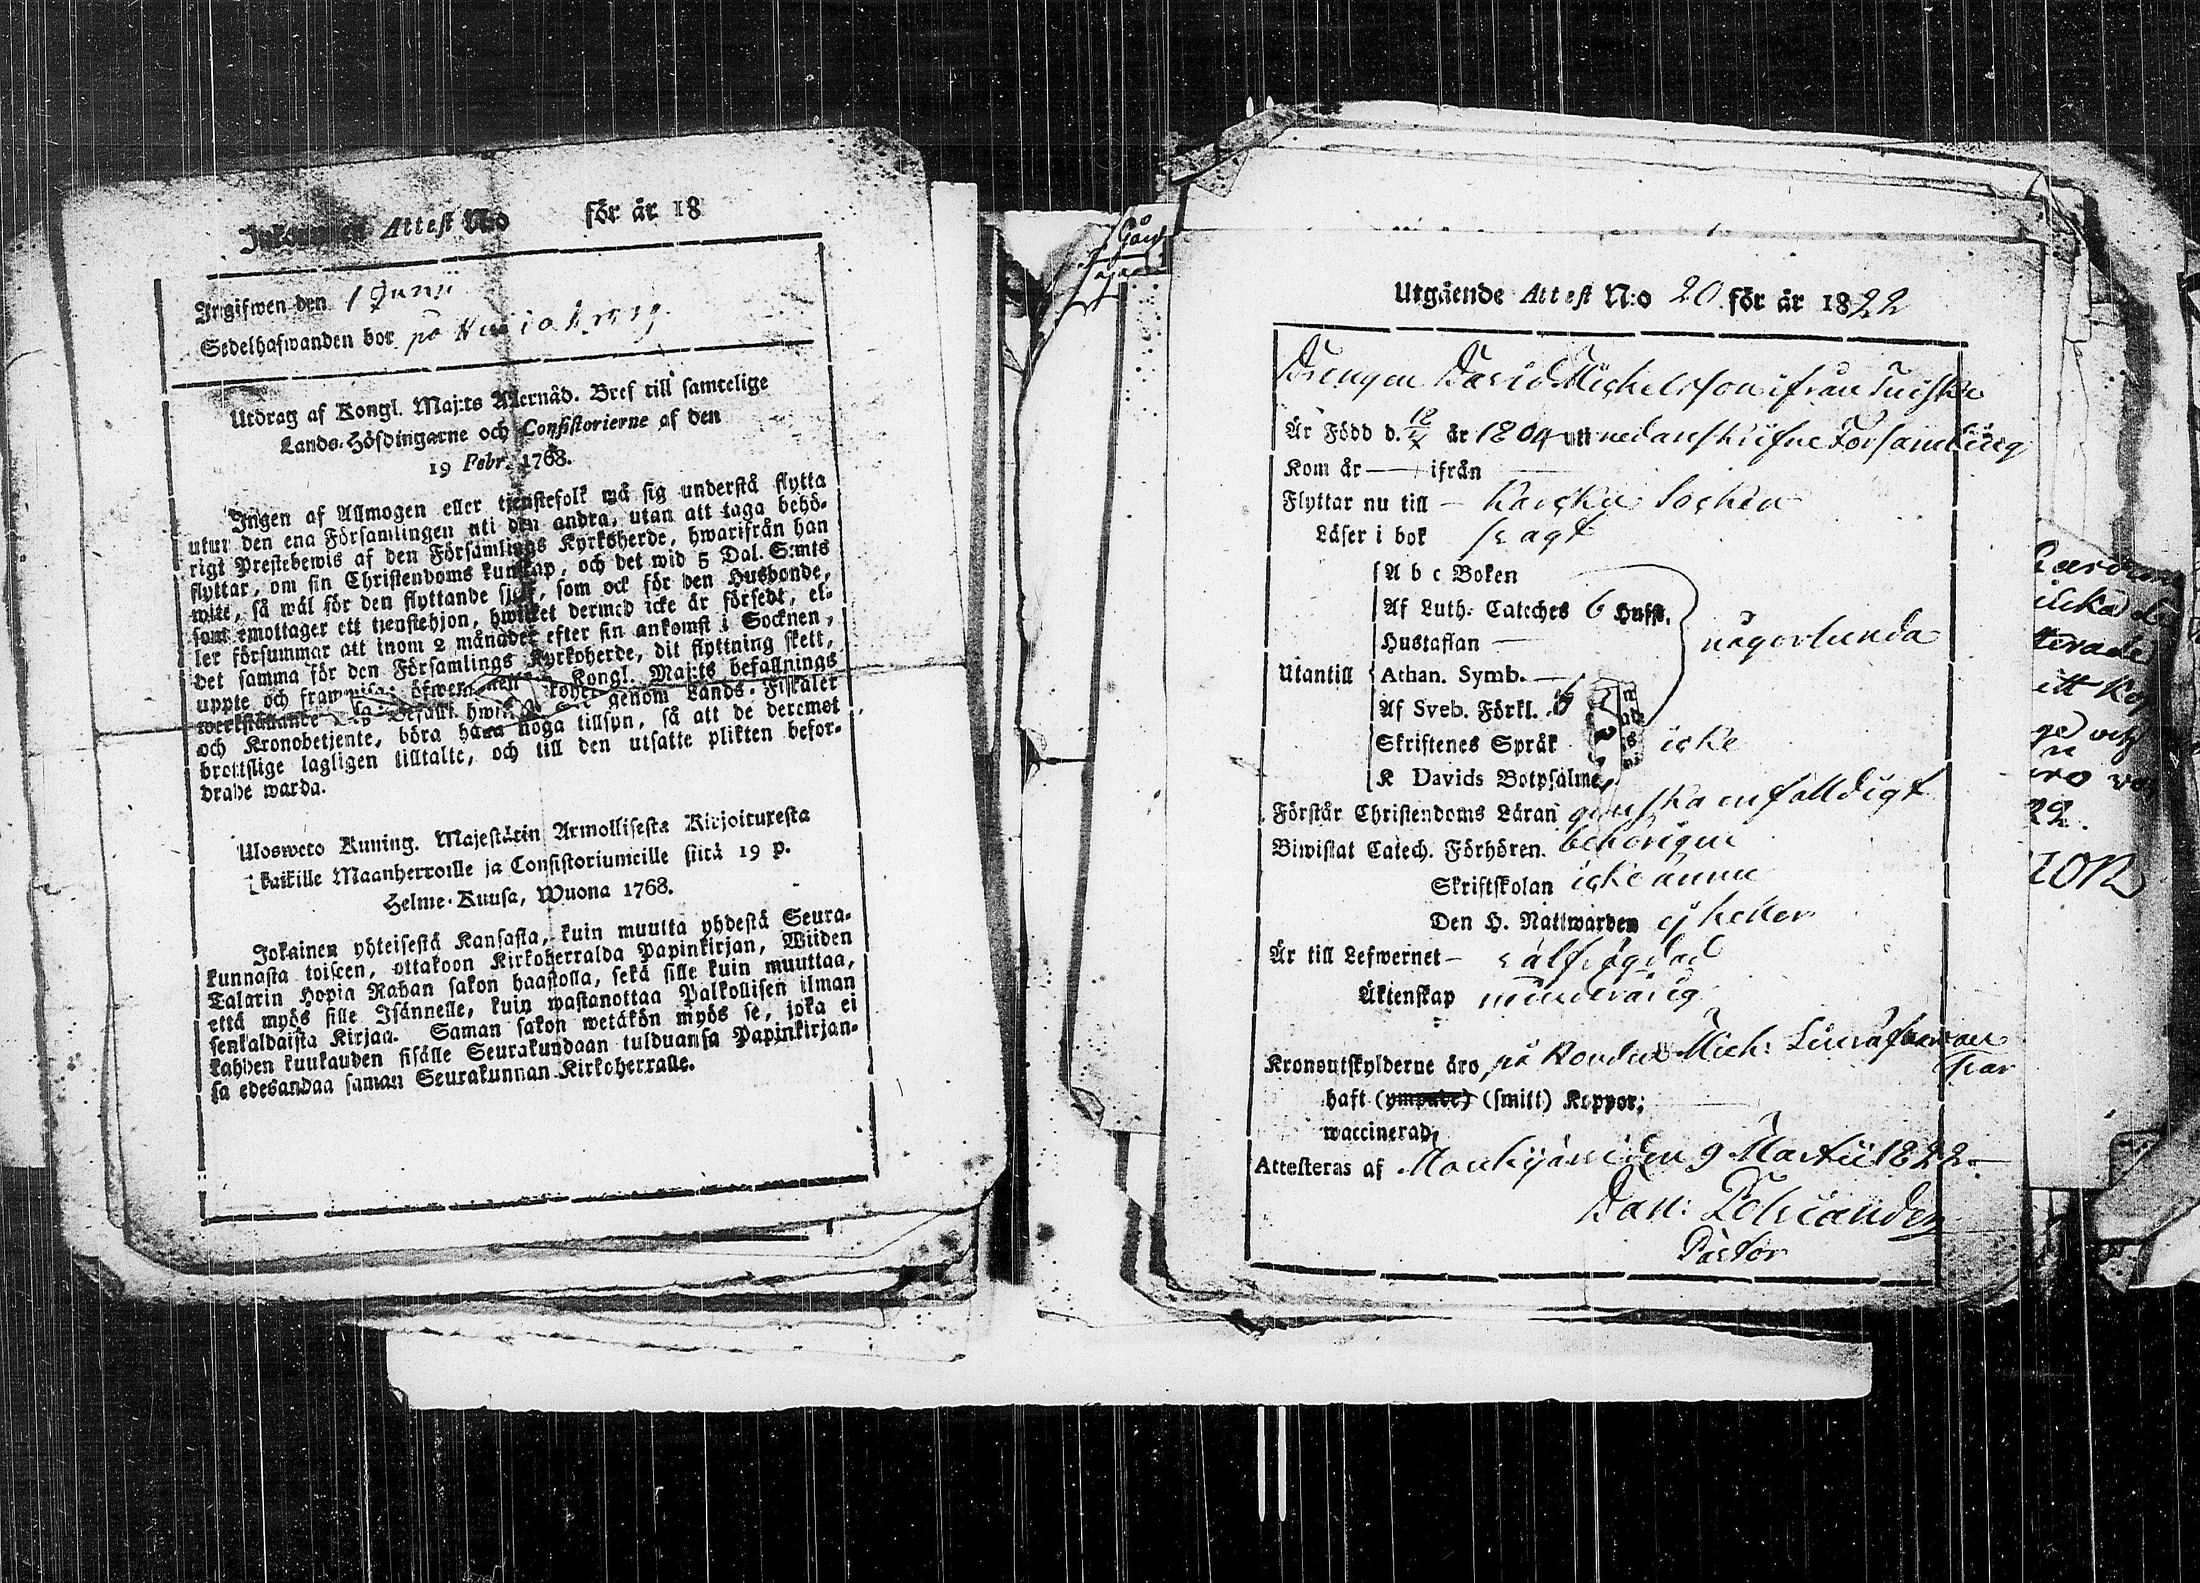 Inkommen Attest N:o för år 18
Ingifwen den 1 Junii
Sedelhafwanden bor på
Utdrag af Kongl. Maj:ts Allernåd. Bref till samtelige
Lands-Höfdingarne och Consistorierne af den
19 Febr. 1768.
Ingen af Allmogen eller tjenstefolk må sig understå flytta
utur den ena Församlingen uti den andra, utan att taga behö-
rigt Prestebewis af den Församlings Kyrkoherde, hwarifrån han
flyttar, om sin Christendoms kunskap, och det wid 5 Dal. S:mts
wite, så wäl för den flyttande sjelf, som ock för den Husbonde,
som emottager ett tjenstehjon, hwilket dermed icke är försedt, el-
ler försummar att inom 2 månader efter sin ankomst i Socknen,
det samma för den Församlings Kyrkoherde, dit flyttning skett,
uppte och framwisa; öfwer Kongl. Maj:ts befallnings
werkställande genom Lands-Fiskaler
och Kronobetjente, böra hafwa noga tillsyn, så att de deremot
brottslige lagligen tilltalte, och till den utsatte plikten befor-
drade warda.
Ulosweto Kuning. Majestätin Armollisesta Kirjoituxesta
kaikille Maanherroille ja Consistoriumeille siitä 19 p.
Helme-Kuusa, Wuona 1768.
Jokainen yhteisestä Kansasta, kuin muutta yhdestä Seura-
kunnasta toiseen, ottakoon Kirkoherralda Papinkirjan, Wiiden
Talarin Hopia Rahan sakon haastolla, sekä sille kuin muuttaa,
että myös sille Isännelle, kuin wastanottaa Palkollisen ilman
senkaldaista Kirjaa. Saman sakon wetäkön myös se, joka ei
kahden kuukauden sisälle Seurakundaan tulduansa Papinkirjan-
sa edesandaa saman Seurakunnan Kirkoherralle.
Utgående Attest N:o 20 för år 1822
Drengen David Michelsson ifrån
Är Född d. 12/X år 1804 uti nedanskrifne Församling
Kom år — ifrån —
Flyttar nu till — socken
Läser i bok svagt
A b c Boken
Af Luth. Cateches 6 Hufst.
Hustaflan —
någorlunda
Utantill Athan. Symb. —
Af Sveb. Förkl. 6
Skriftenes Språk icke
K Davids Botpsalmer
Förstår Christendoms Läran ganska enfalldigt
Biwistat Catech. Förhören behörigen
Skriftskolan icke ännu
Den H. Nattwarden ej heller
Är till Lefwernet — välfrägdad
Äktenskap minderårig
Kronoutskylderne äro på Mich:
haft (ympade) (smitt) Koppor;
waccinerad;
Attesteras af Mouhijärvi den 9 Martii 1822 —
Dan: Polviander
Pastor